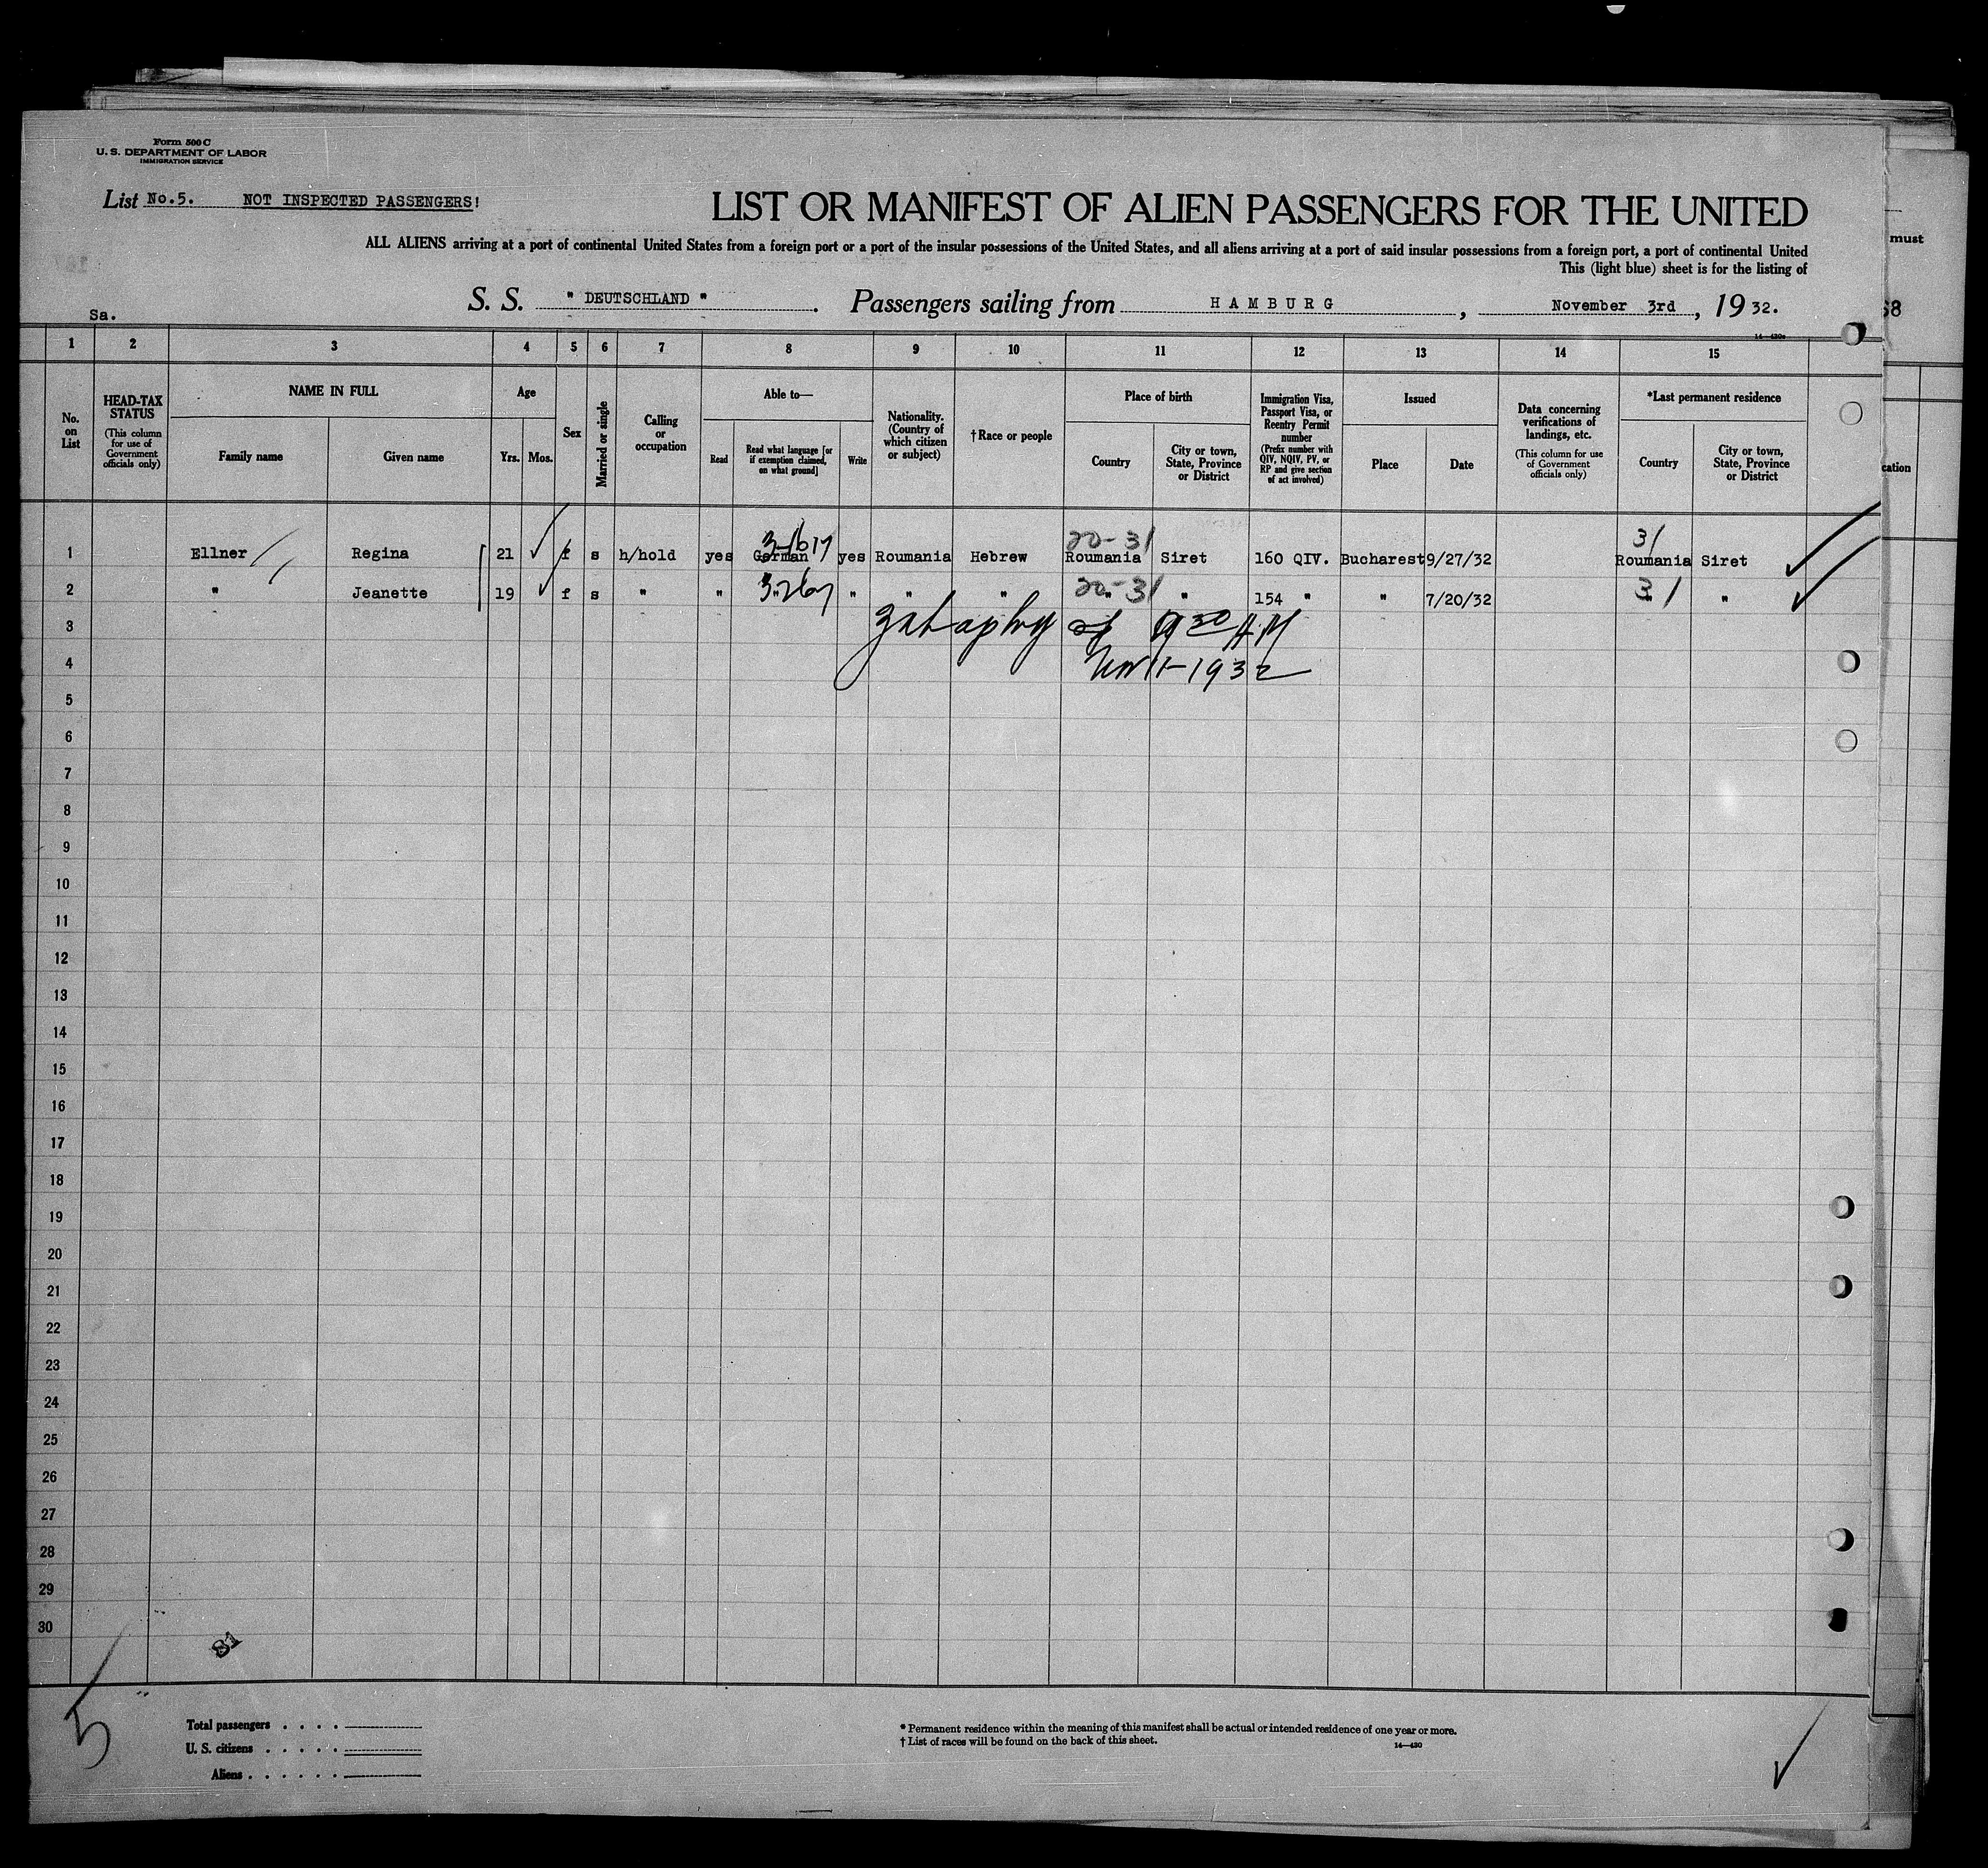 Form 500 C
U. S. DEPARTMENT OF LABOR
IMMIGRATION SERVICE
List No.5. NOT INSPECTED PASSENGERS!
LIST OR MANIFEST OF ALIEN PASSENGERS FOR THE UNITED
must
ALL ALIENS arriving at a port of continental United States from a foreign port or a port of the insular possessions of the United States, and all aliens arriving at a port of said insular possessions from a foreign port, a port of continental United
This (light blue) sheet is for the listing of
Sa.
S. S. " DEUTSCHLAND ". Passengers sailing from HAMBURG, November 3rd, 19 32.
1 2 3 4 5 6 7 8 9 10 11 12 13 14 15
No. on List
HEAD-TAX STATUS (This column for use of Government officials only)
NAME IN FULL
Family name Given name
Age
Yrs. Mos.
Sex
Married or single
Calling or occupation
Able to—
Read
Read what language [or if exemption claimed, on what ground]
Write
Nationality. (Country of which citizen or subject)
†Race or people
Place of birth
Country
City or town, State, Province or District
Immigration Visa, Passport Visa, or Reentry Permit number (Prefix number with QIV, NQIV, PV, or RP and give section of act involved)
Issued
Place Date
Data concerning verifications of landings, etc. (This column for use of Government officials only)
*Last permanent residence
Country
City or town, State, Province or District
cation
20-31 31
1 Ellner Regina 21 f s h/hold yes German yes Roumania Hebrew Roumania Siret 160 QIV. Bucharest 9/27/32 Roumania Siret
2 " Jeanette 19 f s " " " " " " 20-31 " 154 " " 7/20/32 31 "
3 9 30 AM
4 Nov 11-1932
5
6
7
8
9
10
11
12
13
14
15
16
17
18
19
20
21
22
23
24
25
26
27
28
29
30
81
5
Total passengers . . . .
U. S. citizens . . . . .
Aliens . . . . . .
* Permanent residence within the meaning of this manifest shall be actual or intended residence of one year or more.
† List of races will be found on the back of this sheet.
14—430